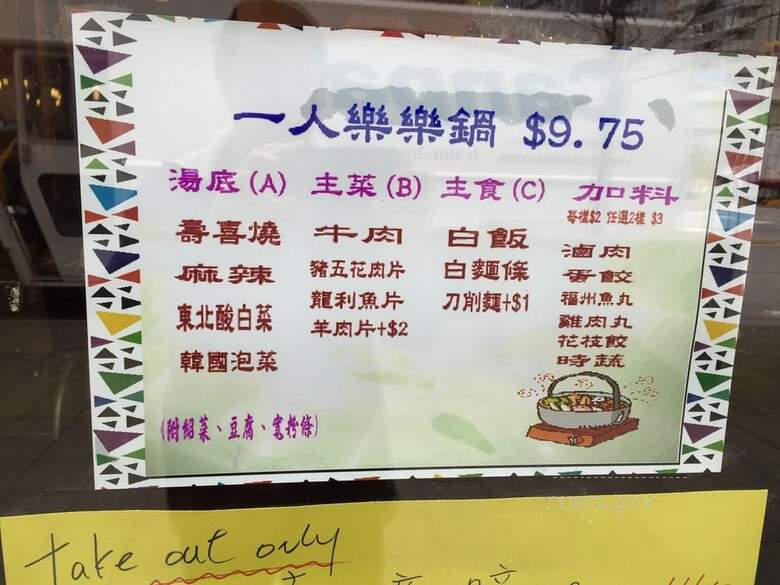 一人樂樂鍋 $9.75
湯底(A) 主菜(B) 主食(C) 加料
每樣$2 任選2樣 $3
壽喜燒 牛肉 白飯 滷肉
麻辣 豬五花肉片 白麵條 蛋餃
東北酸白菜 龍利魚片 刀削麵+$1 福州魚丸
韓國泡菜 羊肉片+$2 雞肉丸
花枝餃
時蔬
(附紹菜、豆腐、寬粉條)
take out only